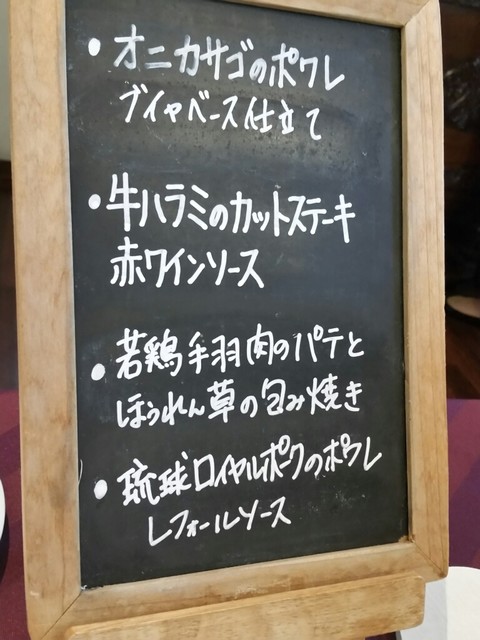 ・オニカサゴのポワレ
ブイヤベース仕立て
・牛ハラミのカットステーキ
赤ワインソース
・若鶏手羽肉のパテと
ほうれん草の包み焼き
・琉球ロイヤルポークのポワレ
レフォールソース